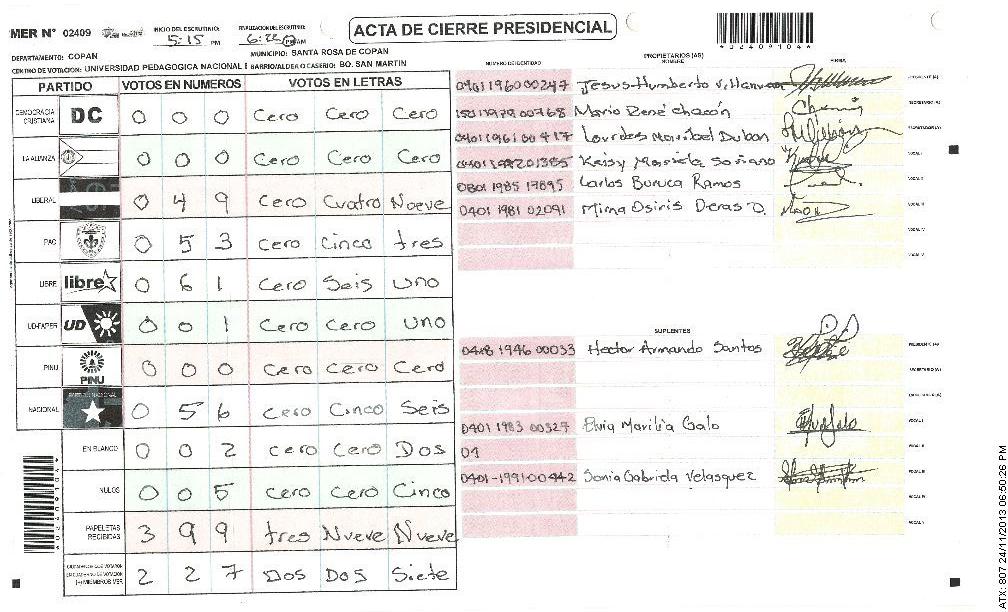 MER N° 02409
INICIO DEL ESCRUTINIO: 5:15 PM
FINALIZACION DEL ESCRUTINIO: 6:22 PM AM
ACTA DE CIERRE PRESIDENCIAL
024091041
DEPARTAMENTO: COPAN
MUNICIPIO: SANTA ROSA DE COPAN
CENTRO DE VOTACION: UNIVERSIDAD PEDAGOGICA NACIONAL BARRIO/ALDEA O CASERIO: BO. SAN MARTIN
PARTIDO VOTOS EN NUMEROS VOTOS EN LETRAS
DEMOCRACIA CRISTIANA DC 0 0 0 Cero Cero Cero
LA ALIANZA 0 0 0 Cero Cero Cero
LIBERAL 0 4 9 Cero Cuatro Nueve
PAC 0 5 3 Cero Cinco tres
LIBRE libre 0 6 1 Cero Seis uno
UD-FAPER UD 0 0 1 Cero Cero uno
PINU PINU 0 0 0 Cero Cero Cero
NACIONAL PARTIDO NACIONAL 0 5 6 Cero Cinco Seis
EN BLANCO 0 0 2 cero Cero Dos
NULOS 0 0 5 Cero Cero Cinco
PAPELETAS RECIBIDAS 3 9 9 tres Nueve Nueve
2 2 7 Dos Dos Siete
NUMERO DE IDENTIDAD PROPIETARIOS (AS) NOMBRE FIRMA
Jesus Humberto
Mario René Chacón
Lourdes Maribel Dubon
Keisy Mariela Soriano
0801 1985 17895 Carlos Buruca Ramos
0401 1981 02091 Mirna Osiris Deras D.
SUPLENTES
1946 00033 Hector Armando Santos
0401 1983 00327 Elvia Marilia Galo
04
0401-1991 00442 Sonia Gabriela Velasquez
ATX: 807 24/11/2013 06:50:26 PM